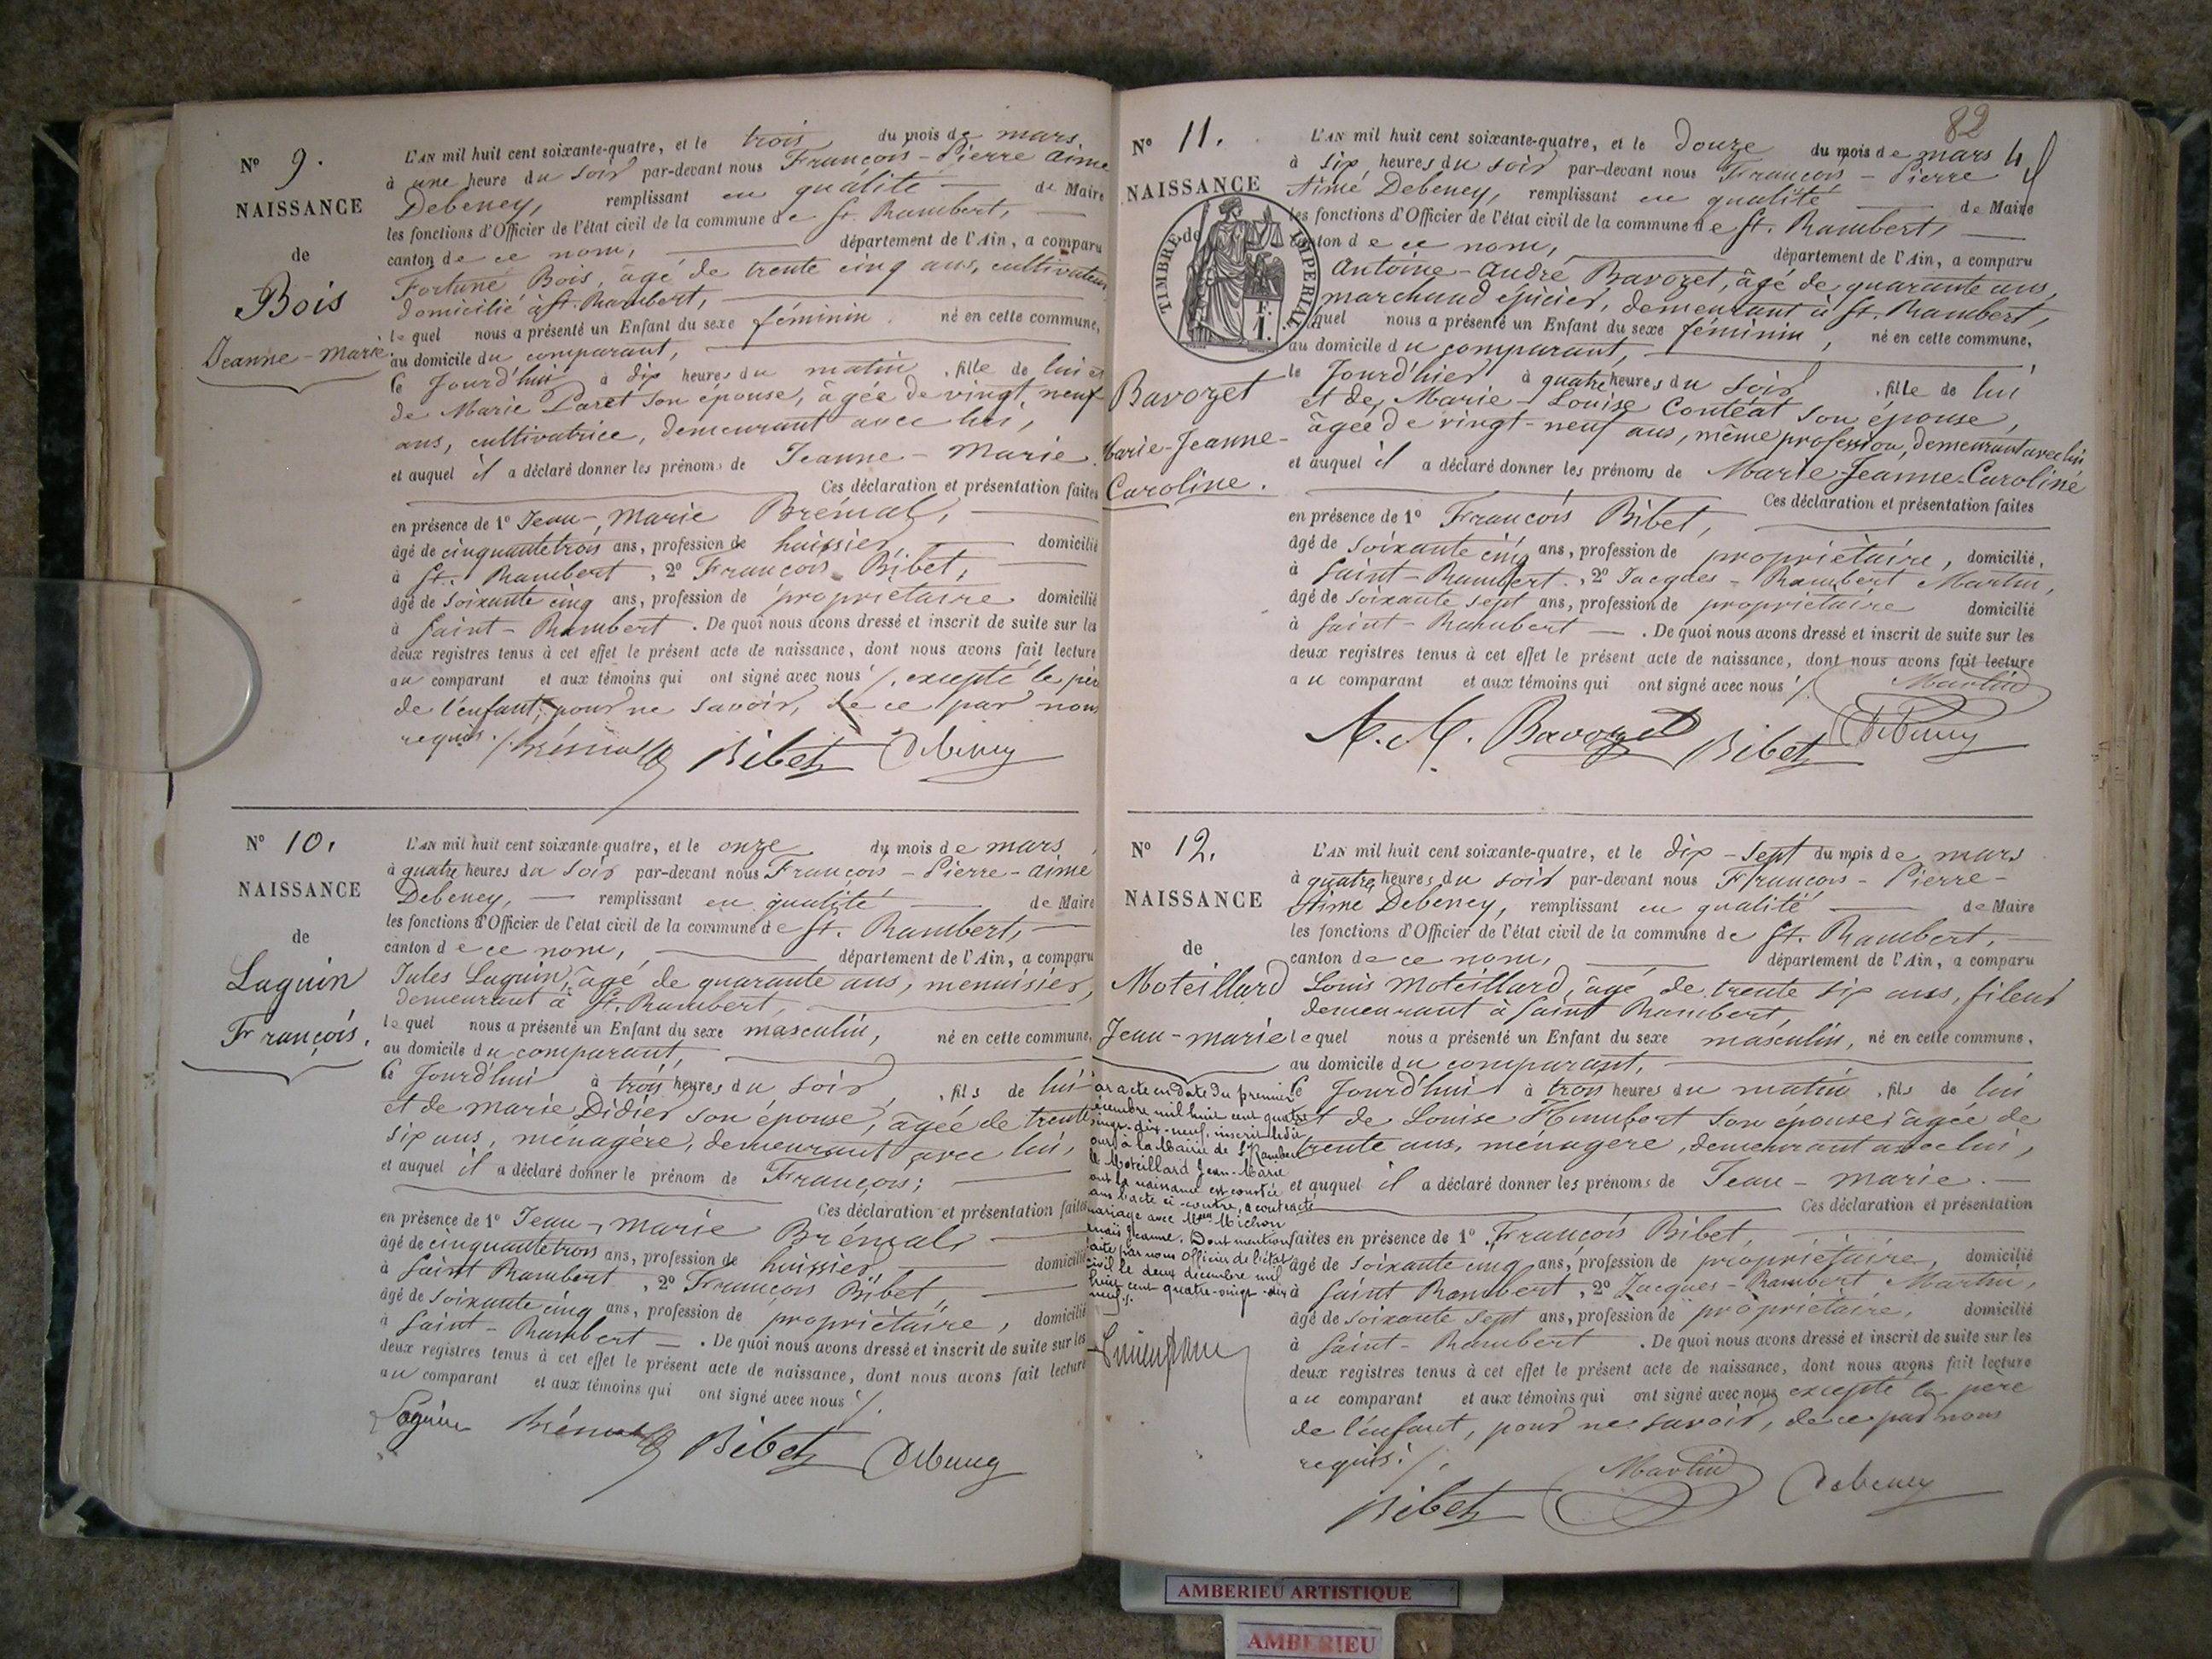 N° 9.
NAISSANCE
de
Bois
Jeanne-Marie
L'AN mil huit cent soixante-quatre, et le trois du mois de mars
à une heure du soir par-devant nous François-Pierre Aimé
Debeney, remplissant en qualité de Maire
les fonctions d'Officier de l'état civil de la commune de St. Rambert,
canton de ce nom, département de l'Ain, a comparu
Fortuné Bois, âgé de trente cinq ans, cultivateur,
domicilié à St. Rambert,
lequel nous a présenté un Enfant du sexe féminin né en cette commune,
au domicile du comparant,
le Jourd'hui à dix heures du matin, fille de lui et
de Marie Laret son épouse, âgée de vingt neuf
ans, cultivatrice, demeurant avec lui,
et auquel il a déclaré donner les prénoms de Jeanne-Marie.
Ces déclaration et présentation faites
en présence de 1° Jean-Marie Brémal,
âgé de cinquante trois ans, profession de huissier domicilié
à St. Rambert, 2° François Bibet,
âgé de soixante cinq ans, profession de propriétaire domicilié
à Saint-Rambert. De quoi nous avons dressé et inscrit de suite sur les
deux registres tenus à cet effet le présent acte de naissance, dont nous avons fait lecture
au comparant et aux témoins qui ont signé avec nous /. excepté le père
de l'enfant, pour ne savoir, de ce par nous
requis./.
Bibet Debeney
N° 10.
NAISSANCE
de
Laguin
François.
L'AN mil huit cent soixante-quatre, et le onze du mois de mars
à quatre heures du soir par-devant nous François-Pierre-Aimé
Debeney, remplissant en qualité de Maire
les fonctions d'Officier de l'état civil de la commune de St. Rambert,
canton de ce nom, département de l'Ain, a comparu
Jules Laguin, âgé de quarante ans, menuisier,
demeurant à St. Rambert,
lequel nous a présenté un Enfant du sexe masculin, né en cette commune,
au domicile du comparant,
le Jourd'hui à trois heures du soir, fils de lui
et de Marie Didier son épouse, âgée de trente
six ans, ménagère, demeurant avec lui,
et auquel il a déclaré donner le prénom de François;
Ces déclaration et présentation faites
en présence de 1° Jean-Marie Brémal,
âgé de cinquante trois ans, profession de huissier, domicilié
à Saint Rambert, 2° François Bibet,
âgé de soixante cinq ans, profession de propriétaire, domicilié
à Saint-Rambert. De quoi nous avons dressé et inscrit de suite sur les
deux registres tenus à cet effet le présent acte de naissance, dont nous avons fait lecture
au comparant et aux témoins qui ont signé avec nous /.
Laguin Bibet Debeney
82
N° 11.
NAISSANCE
de
TIMBRE IMPERIAL
Bavozet
Marie-Jeanne-
Caroline.
L'AN mil huit cent soixante-quatre, et le douze du mois de mars
à six heures du soir par-devant nous François-Pierre
Aimé Debeney, remplissant en qualité de Maire
les fonctions d'Officier de l'état civil de la commune de St. Rambert,
canton de ce nom, département de l'Ain, a comparu
Antoine-André Bavozet, âgé de quarante ans,
marchand épicier, demeurant à St. Rambert,
lequel nous a présenté un Enfant du sexe féminin, né en cette commune,
au domicile du comparant,
le Jourd'hier à quatre heures du soir, fille de lui
et de Marie-Louise Contéat son épouse,
âgée de vingt-neuf ans, même profession, demeurant avec lui
et auquel il a déclaré donner les prénoms de Marie-Jeanne-Caroline
Ces déclaration et présentation faites
en présence de 1° François Bibet,
âgé de soixante cinq ans, profession de propriétaire, domicilié,
à Saint-Rambert. 2° Jacques-Rambert Martin,
âgé de soixante sept ans, profession de propriétaire domicilié
à Saint-Rambert. De quoi nous avons dressé et inscrit de suite sur les
deux registres tenus à cet effet le présent acte de naissance, dont nous avons fait lecture
au comparant et aux témoins qui ont signé avec nous /. Martin
Bavozet Bibet Debeney
N° 12.
NAISSANCE
de
Moteillard
Jean-Marie
Par acte en date du premier
décembre mil huit cent quatre
vingt-dix-neuf, inscrit ledit
jour à la Mairie de St Rambert
le Moteillard Jean-Marie
dont la naissance est constatée
dans l'acte ci-contre, a contracté
mariage avec Michon
Jeanne. Dont mention
faite par nous Officier de l'état
civil le deux décembre mil
huit cent quatre-vingt-dix
neuf./.
L'AN mil huit cent soixante-quatre, et le dix-sept du mois de mars
à quatre heures du soir par-devant nous François-Pierre-
Aimé Debeney, remplissant en qualité de Maire
les fonctions d'Officier de l'état civil de la commune de St. Rambert,
canton de ce nom, département de l'Ain, a comparu
Louis Moteillard, âgé de trente six ans, fileur
demeurant à Saint Rambert,
lequel nous a présenté un Enfant du sexe masculin, né en cette commune,
au domicile du comparant,
le Jourd'hui à trois heures du matin, fils de lui
et de Louise Humbert son épouse, âgée de
trente ans, ménagère, demeurant avec lui,
et auquel il a déclaré donner les prénoms de Jean-Marie.
Ces déclaration et présentation
faites en présence de 1° François Bibet,
âgé de soixante cinq ans, profession de propriétaire, domicilié
à Saint Rambert, 2° Jacques-Rambert Martin,
âgé de soixante sept ans, profession de propriétaire, domicilié
à Saint-Rambert. De quoi nous avons dressé et inscrit de suite sur les
deux registres tenus à cet effet le présent acte de naissance, dont nous avons fait lecture
au comparant et aux témoins qui ont signé avec nous excepté le père
de l'enfant, pour ne savoir, de ce par nous
requis./.
Bibet Martin Debeney
AMBERIEU ARTISTIQUE
AMBERIEU